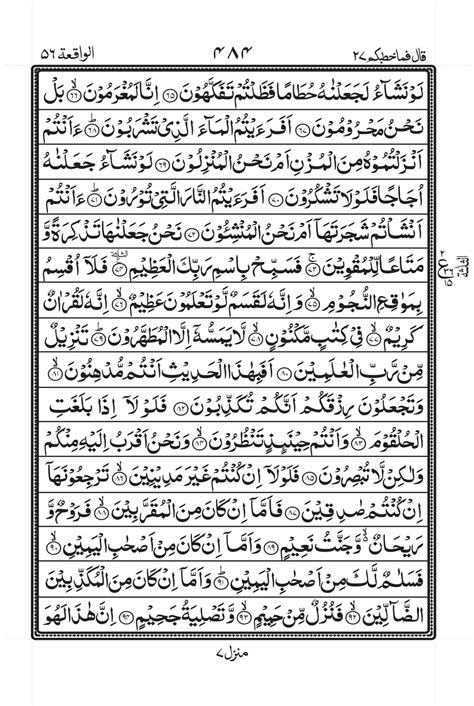 قال فما خطبكم ٢٧ ٤٨٤ الواقعة ٥٦
لَوْ نَشَآءُ لَجَعَلْنٰهُ حُطَامًا فَظَلْتُمْ تَفَكَّهُوْنَ ﴿۶۵﴾ اِنَّا لَمُغْرَمُوْنَ ﴿۶۶﴾ بَلْ
نَحْنُ مَحْرُوْمُوْنَ ﴿۶۷﴾ اَفَرَءَيْتُمُ الْمَآءَ الَّذِيْ تَشْرَبُوْنَ ﴿۶۸﴾ ءَاَنْتُمْ
اَنْزَلْتُمُوْهُ مِنَ الْمُزْنِ اَمْ نَحْنُ الْمُنْزِلُوْنَ ﴿۶۹﴾ لَوْ نَشَآءُ جَعَلْنٰهُ
اُجَاجًا فَلَوْلَا تَشْكُرُوْنَ ﴿۷۰﴾ اَفَرَءَيْتُمُ النَّارَ الَّتِيْ تُوْرُوْنَ ﴿۷۱﴾ ءَاَنْتُمْ
اَنْشَاْتُمْ شَجَرَتَهَاۤ اَمْ نَحْنُ الْمُنْشِـُٔوْنَ ﴿۷۲﴾ نَحْنُ جَعَلْنٰهَا تَذْكِرَةً وَّ
مَتَاعًا لِّلْمُقْوِيْنَ ﴿۷۳﴾ فَسَبِّحْ بِاسْمِ رَبِّكَ الْعَظِيْمِ ﴿۷۴﴾ فَلَاۤ اُقْسِمُ
بِمَوٰقِعِ النُّجُوْمِ ﴿۷۵﴾ وَاِنَّهٗ لَقَسَمٌ لَّوْ تَعْلَمُوْنَ عَظِيْمٌ ﴿۷۶﴾ اِنَّهٗ لَقُرْاٰنٌ
كَرِيْمٌ ﴿۷۷﴾ فِيْ كِتٰبٍ مَّكْنُوْنٍ ﴿۷۸﴾ لَّا يَمَسُّهٗۤ اِلَّا الْمُطَهَّرُوْنَ ﴿۷۹﴾ تَنْزِيْلٌ
مِّنْ رَّبِّ الْعٰلَمِيْنَ ﴿۸۰﴾ اَفَبِهٰذَا الْحَدِيْثِ اَنْتُمْ مُّدْهِنُوْنَ ﴿۸۱﴾
وَتَجْعَلُوْنَ رِزْقَكُمْ اَنَّكُمْ تُكَذِّبُوْنَ ﴿۸۲﴾ فَلَوْلَاۤ اِذَا بَلَغَتِ
الْحُلْقُوْمَ ﴿۸۳﴾ وَاَنْتُمْ حِيْنَئِذٍ تَنْظُرُوْنَ ﴿۸۴﴾ وَنَحْنُ اَقْرَبُ اِلَيْهِ مِنْكُمْ
وَلٰكِنْ لَّا تُبْصِرُوْنَ ﴿۸۵﴾ فَلَوْلَاۤ اِنْ كُنْتُمْ غَيْرَ مَدِيْنِيْنَ ﴿۸۶﴾ تَرْجِعُوْنَهَاۤ
اِنْ كُنْتُمْ صٰدِقِيْنَ ﴿۸۷﴾ فَاَمَّاۤ اِنْ كَانَ مِنَ الْمُقَرَّبِيْنَ ﴿۸۸﴾ فَرَوْحٌ وَّ
رَيْحَانٌ وَّجَنَّتُ نَعِيْمٍ ﴿۸۹﴾ وَاَمَّاۤ اِنْ كَانَ مِنْ اَصْحٰبِ الْيَمِيْنِ ﴿۹۰﴾
فَسَلٰمٌ لَّكَ مِنْ اَصْحٰبِ الْيَمِيْنِ ﴿۹۱﴾ وَاَمَّاۤ اِنْ كَانَ مِنَ الْمُكَذِّبِيْنَ
الضَّآلِّيْنَ ﴿۹۲﴾ فَنُزُلٌ مِّنْ حَمِيْمٍ ﴿۹۳﴾ وَّتَصْلِيَةُ جَحِيْمٍ ﴿۹۴﴾ اِنَّ هٰذَا لَهُوَ
منزل ٧